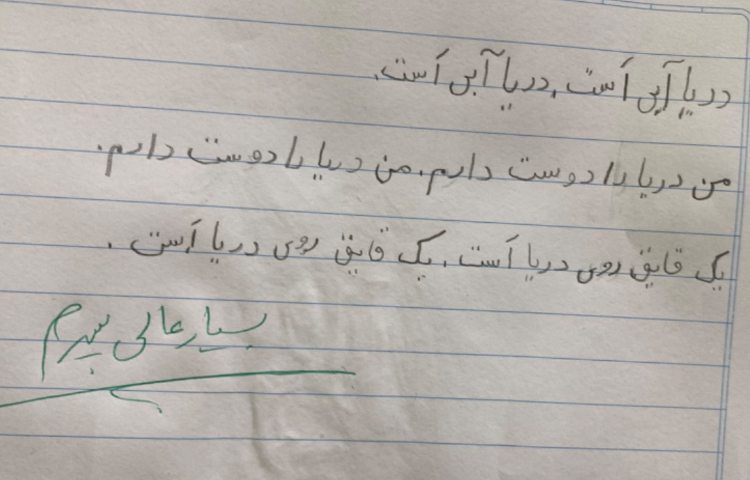 دریا آبی اَست. دریا آبی اَست.
من دریا را دوست دارم. من دریا را دوست دارم.
یک قایق روی دریا اَست. یک قایق روی دریا اَست.
بسیار عالی پسرم